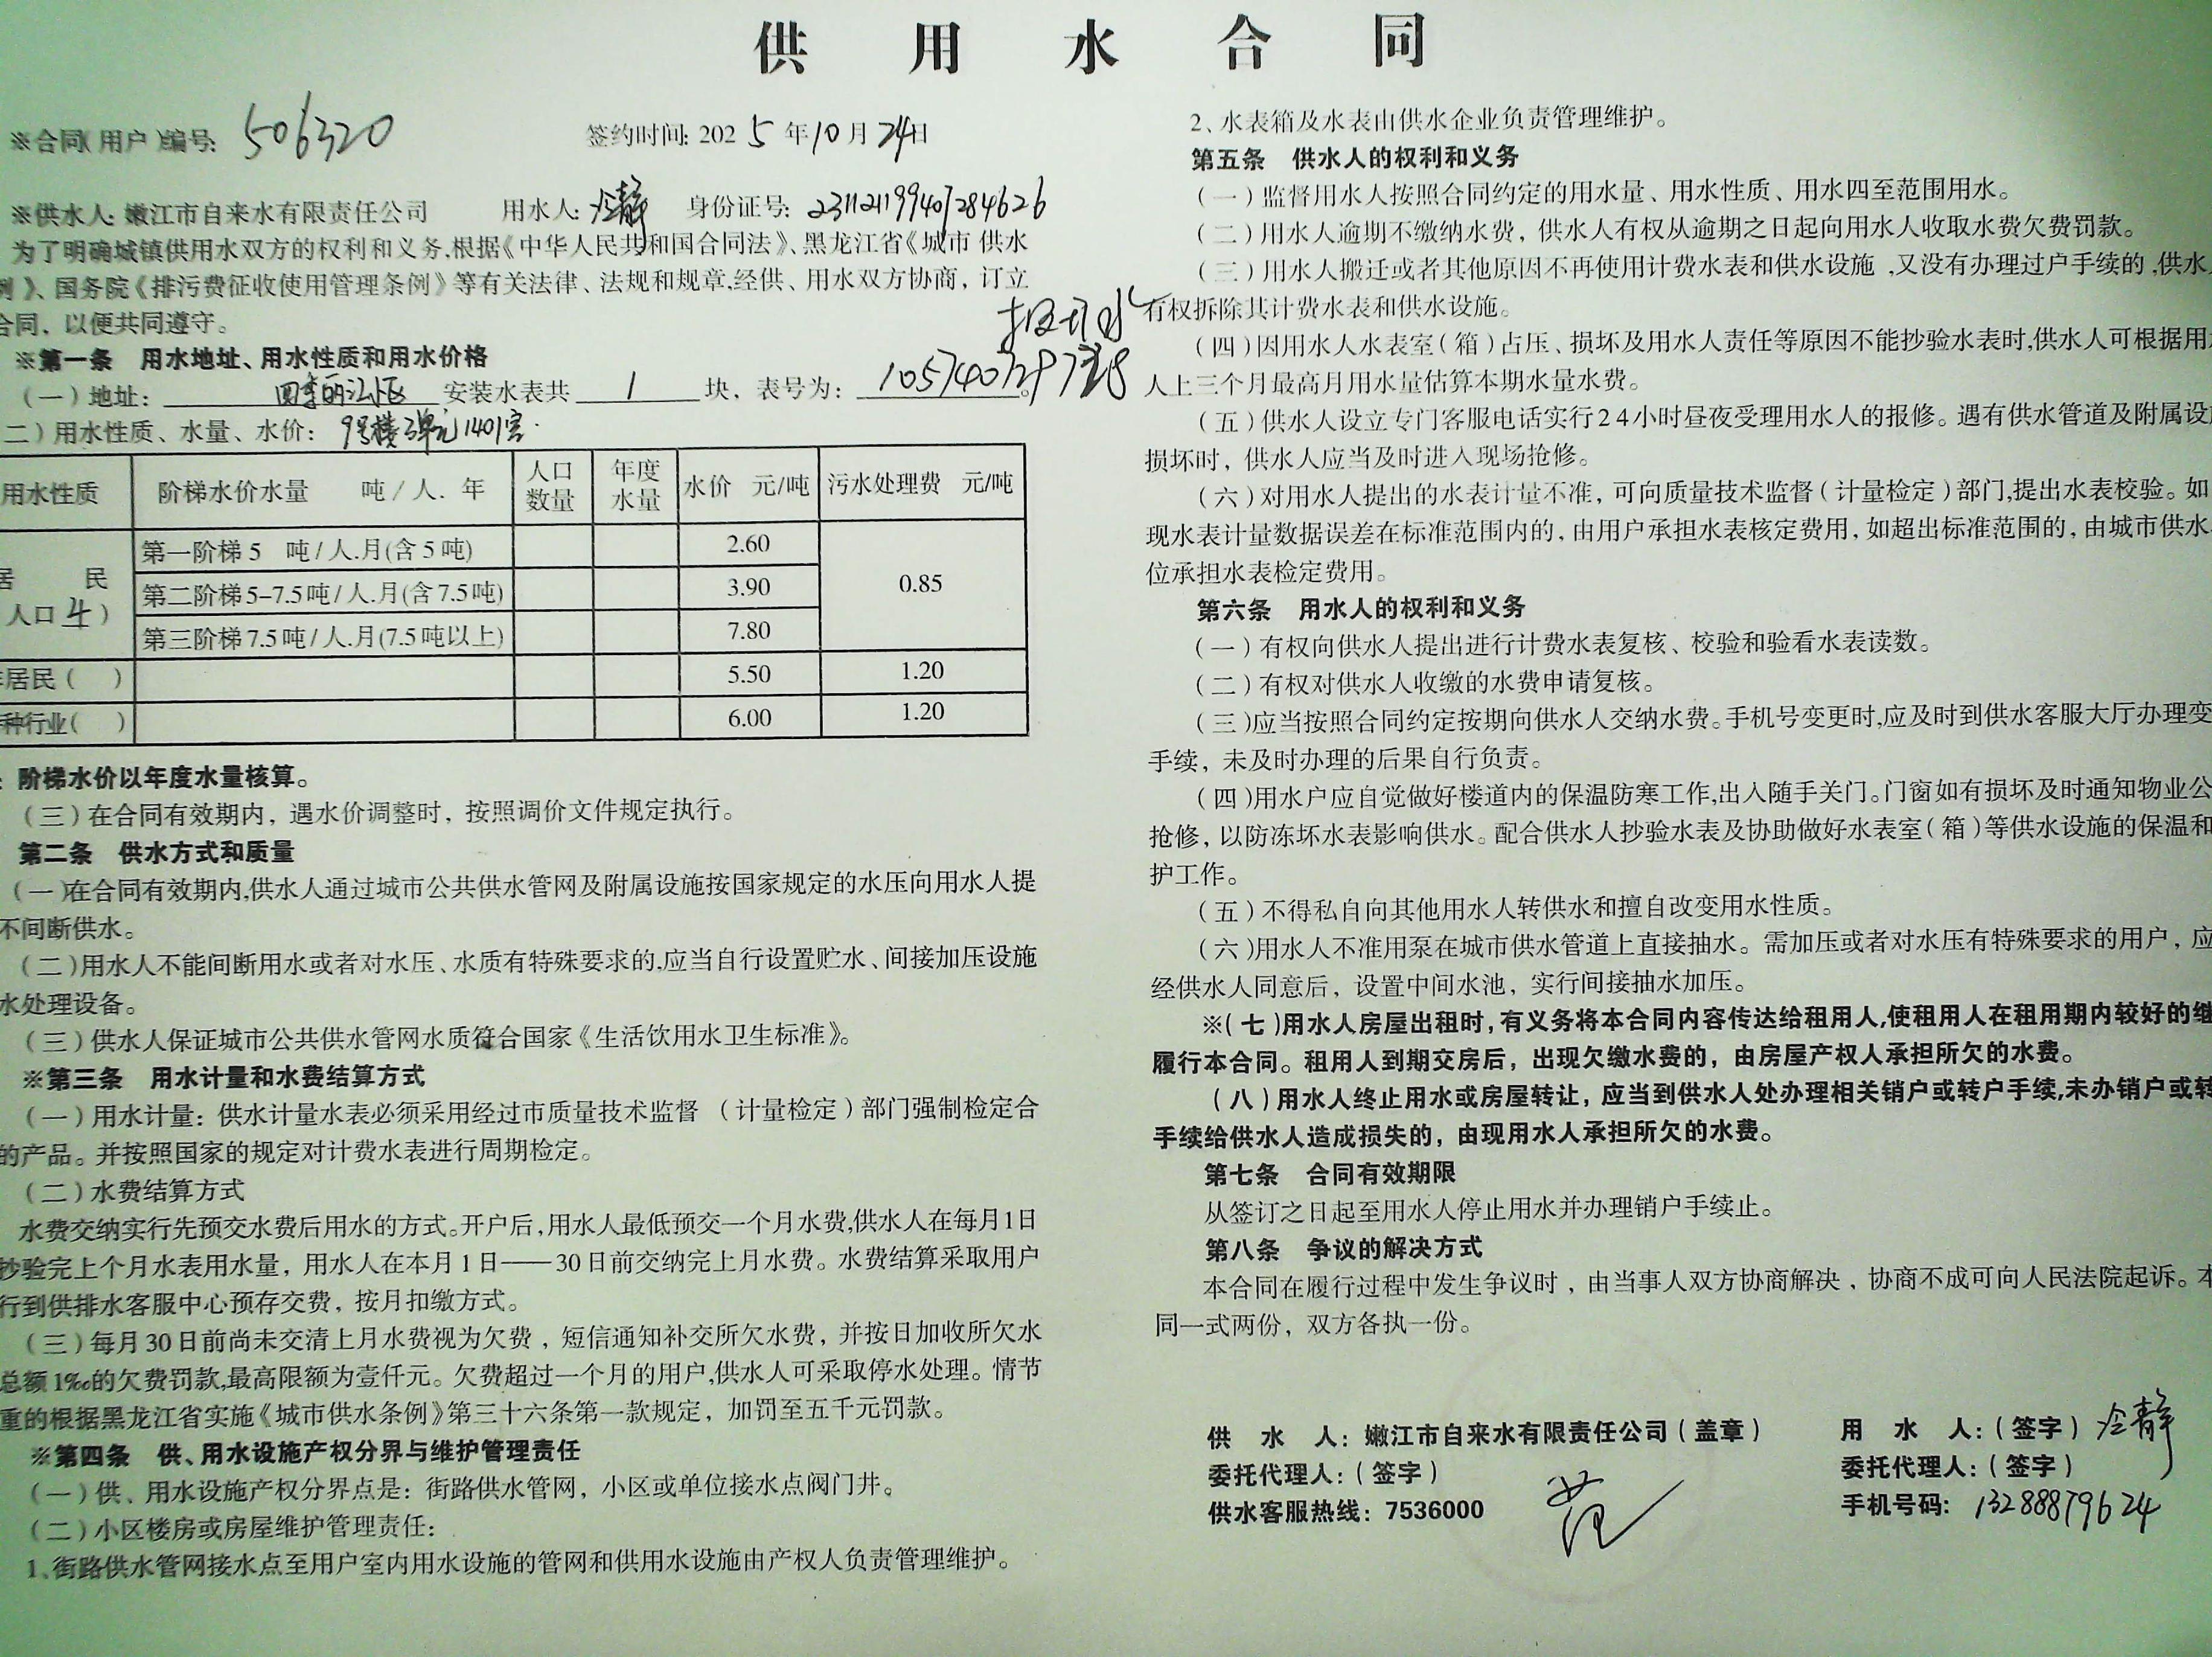 供用水合同
※合同(用户)编号: 506320 签约时间: 2025年10月24日
※供水人: 嫩江市自来水有限责任公司 用水人: 冷静 身份证号: 231121199407284626
为了明确城镇供用水双方的权利和义务,根据《中华人民共和国合同法》、黑龙江省《城市供水
例》、国务院《排污费征收使用管理条例》等有关法律、法规和规章,经供、用水双方协商，订立
合同，以便共同遵守。
※第一条 用水地址、用水性质和用水价格
(一)地址: 四季丽江小区 安装水表共 1 块，表号为:
二)用水性质、水量、水价: 9号楼3单元1401室
用水性质 阶梯水价水量 吨/人.年 人口数量 年度水量 水价 元/吨 污水处理费 元/吨
居民 人口4) 第一阶梯5 吨/人.月(含5吨) 2.60 0.85
第二阶梯5-7.5吨/人.月(含7.5吨) 3.90
第三阶梯7.5吨/人.月(7.5吨以上) 7.80
居民( ) 5.50 1.20
种行业( ) 6.00 1.20
: 阶梯水价以年度水量核算。
(三)在合同有效期内，遇水价调整时，按照调价文件规定执行。
第二条 供水方式和质量
(一)在合同有效期内,供水人通过城市公共供水管网及附属设施按国家规定的水压向用水人提
不间断供水。
(二)用水人不能间断用水或者对水压、水质有特殊要求的,应当自行设置贮水、间接加压设施
水处理设备。
(三)供水人保证城市公共供水管网水质符合国家《生活饮用水卫生标准》。
※第三条 用水计量和水费结算方式
(一)用水计量: 供水计量水表必须采用经过市质量技术监督 (计量检定)部门强制检定合
的产品。并按照国家的规定对计费水表进行周期检定。
(二)水费结算方式
水费交纳实行先预交水费后用水的方式。开户后,用水人最低预交一个月水费,供水人在每月1日
抄验完上个月水表用水量，用水人在本月1日——30日前交纳完上月水费。水费结算采取用户
行到供排水客服中心预存交费，按月扣缴方式。
(三)每月30日前尚未交清上月水费视为欠费，短信通知补交所欠水费，并按日加收所欠水
总额1‰的欠费罚款,最高限额为壹仟元。欠费超过一个月的用户,供水人可采取停水处理。情节
重的根据黑龙江省实施《城市供水条例》第三十六条第一款规定，加罚至五千元罚款。
※第四条 供、用水设施产权分界与维护管理责任
(一)供、用水设施产权分界点是: 街路供水管网，小区或单位接水点阀门井。
(二)小区楼房或房屋维护管理责任:
1、街路供水管网接水点至用户室内用水设施的管网和供用水设施由产权人负责管理维护。
2、水表箱及水表由供水企业负责管理维护。
第五条 供水人的权利和义务
(一)监督用水人按照合同约定的用水量、用水性质、用水四至范围用水。
(二)用水人逾期不缴纳水费，供水人有权从逾期之日起向用水人收取水费欠费罚款。
(三)用水人搬迁或者其他原因不再使用计费水表和供水设施,又没有办理过户手续的,供水
有权拆除其计费水表和供水设施。
(四)因用水人水表室(箱)占压、损坏及用水人责任等原因不能抄验水表时,供水人可根据用
人上三个月最高月用水量估算本期水量水费。
(五)供水人设立专门客服电话实行24小时昼夜受理用水人的报修。遇有供水管道及附属设
损坏时，供水人应当及时进入现场抢修。
(六)对用水人提出的水表计量不准，可向质量技术监督(计量检定)部门,提出水表校验。如
现水表计量数据误差在标准范围内的，由用户承担水表核定费用，如超出标准范围的，由城市供水
位承担水表检定费用。
第六条 用水人的权利和义务
(一)有权向供水人提出进行计费水表复核、校验和验看水表读数。
(二)有权对供水人收缴的水费申请复核。
(三)应当按照合同约定按期向供水人交纳水费。手机号变更时,应及时到供水客服大厅办理变
手续，未及时办理的后果自行负责。
(四)用水户应自觉做好楼道内的保温防寒工作,出入随手关门。门窗如有损坏及时通知物业公
抢修，以防冻坏水表影响供水。配合供水人抄验水表及协助做好水表室(箱)等供水设施的保温和
护工作。
(五)不得私自向其他用水人转供水和擅自改变用水性质。
(六)用水人不准用泵在城市供水管道上直接抽水。需加压或者对水压有特殊要求的用户，应
经供水人同意后，设置中间水池，实行间接抽水加压。
※(七)用水人房屋出租时,有义务将本合同内容传达给租用人,使租用人在租用期内较好的继
履行本合同。租用人到期交房后，出现欠缴水费的，由房屋产权人承担所欠的水费。
(八)用水人终止用水或房屋转让，应当到供水人处办理相关销户或转户手续,未办销户或转
手续给供水人造成损失的，由现用水人承担所欠的水费。
第七条 合同有效期限
从签订之日起至用水人停止用水并办理销户手续止。
第八条 争议的解决方式
本合同在履行过程中发生争议时，由当事人双方协商解决，协商不成可向人民法院起诉。本
同一式两份，双方各执一份。
供水人: 嫩江市自来水有限责任公司(盖章) 用水人: (签字) 冷静
委托代理人: (签字) 委托代理人: (签字)
供水客服热线: 7536000 手机号码: 13288879624